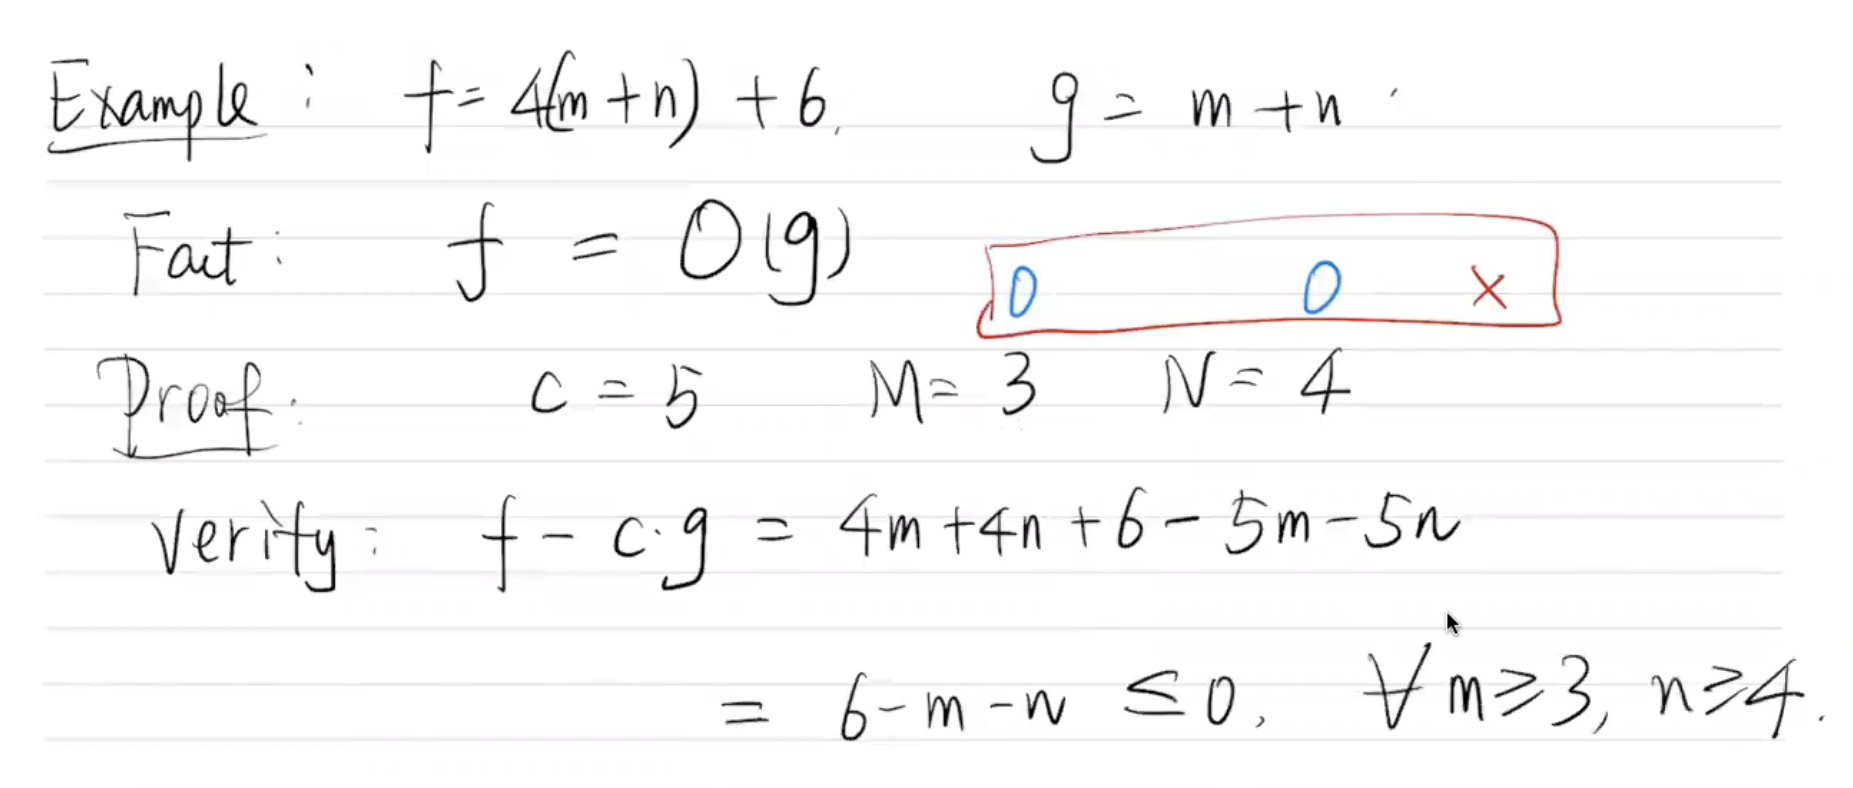 Example: f = 4(m+n) + 6, g = m+n.
Fact: f = O(g)
O O ×
Proof: C = 5 M = 3 N = 4
Verify: f - c·g = 4m+4n+6-5m-5n
= 6-m-n ≤ 0, ∀ m≥3, n≥4.